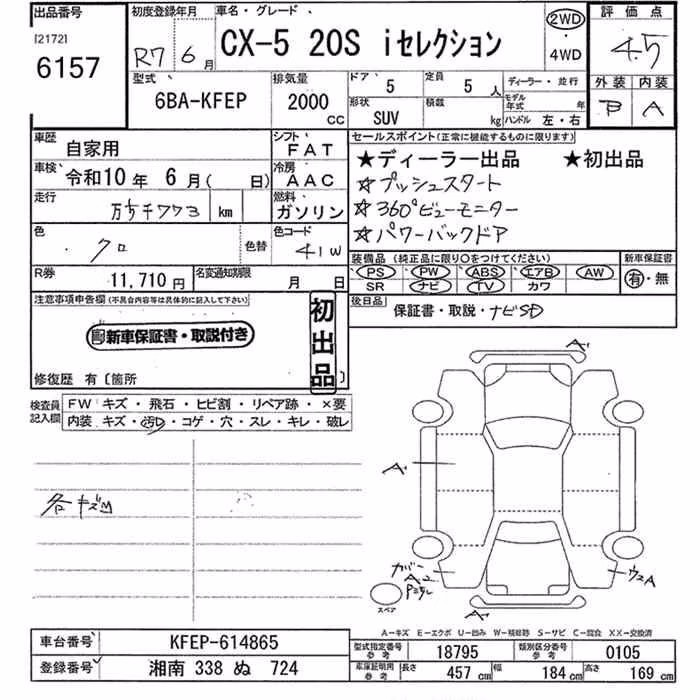 出品番号
[2172]
6157
初度登録年月
R7 6月
車名・グレード
CX-5 20S iセレクション
2WD
・
4WD
評価点
4.5
外装 内装
B A
型式
6BA-KFEP
排気量
2000
CC
ドア 5
定員 5 人
形状 SUV
積載 kg
ディーラー・並行
モデル年式 年
ハンドル 左・右
車歴 自家用
シフト FAT
車検 令和10年 6月( 日)
冷房 AAC
走行 km
燃料 ガソリン
色 クロ
色替
色コード 41W
R券 11,710円
名変通知期限 月 日
セールスポイント(正常に機能するものに限ります)
★ディーラー出品 ★初出品
☆プッシュスタート
☆360°ビューモニター
☆パワーバックドア
装備品 (純正品に限り○をつけてください)
PS PW ABS エアB AW
SR ナビ TV カワ
新車保証書
有・無
後日品 保証書・取説・ナビSD
注意事項申告欄(不具合内容等は具体的に記入して下さい)
新車保証書・取説付き
初出品
修復歴 有〔箇所 〕
検査員記入欄
FW キズ・飛石・ヒビ割・リペア跡・×要
内装 キズ・汚レ・コゲ・穴・スレ・キレ・破レ
各キズ凹
A
A
カバー
A2
ウスA
A
スペア
A−キズ E−エクボ U−凹み W−補修跡 S−サビ C−腐食 XX−交換済
車台番号 KFEP-614865
登録番号 湘南 338 ぬ 724
型式指定番号 参考 18795
類別区分番号 参考 0105
車庫証明用 参考
長さ 457 cm
幅 184 cm
高さ 169 cm